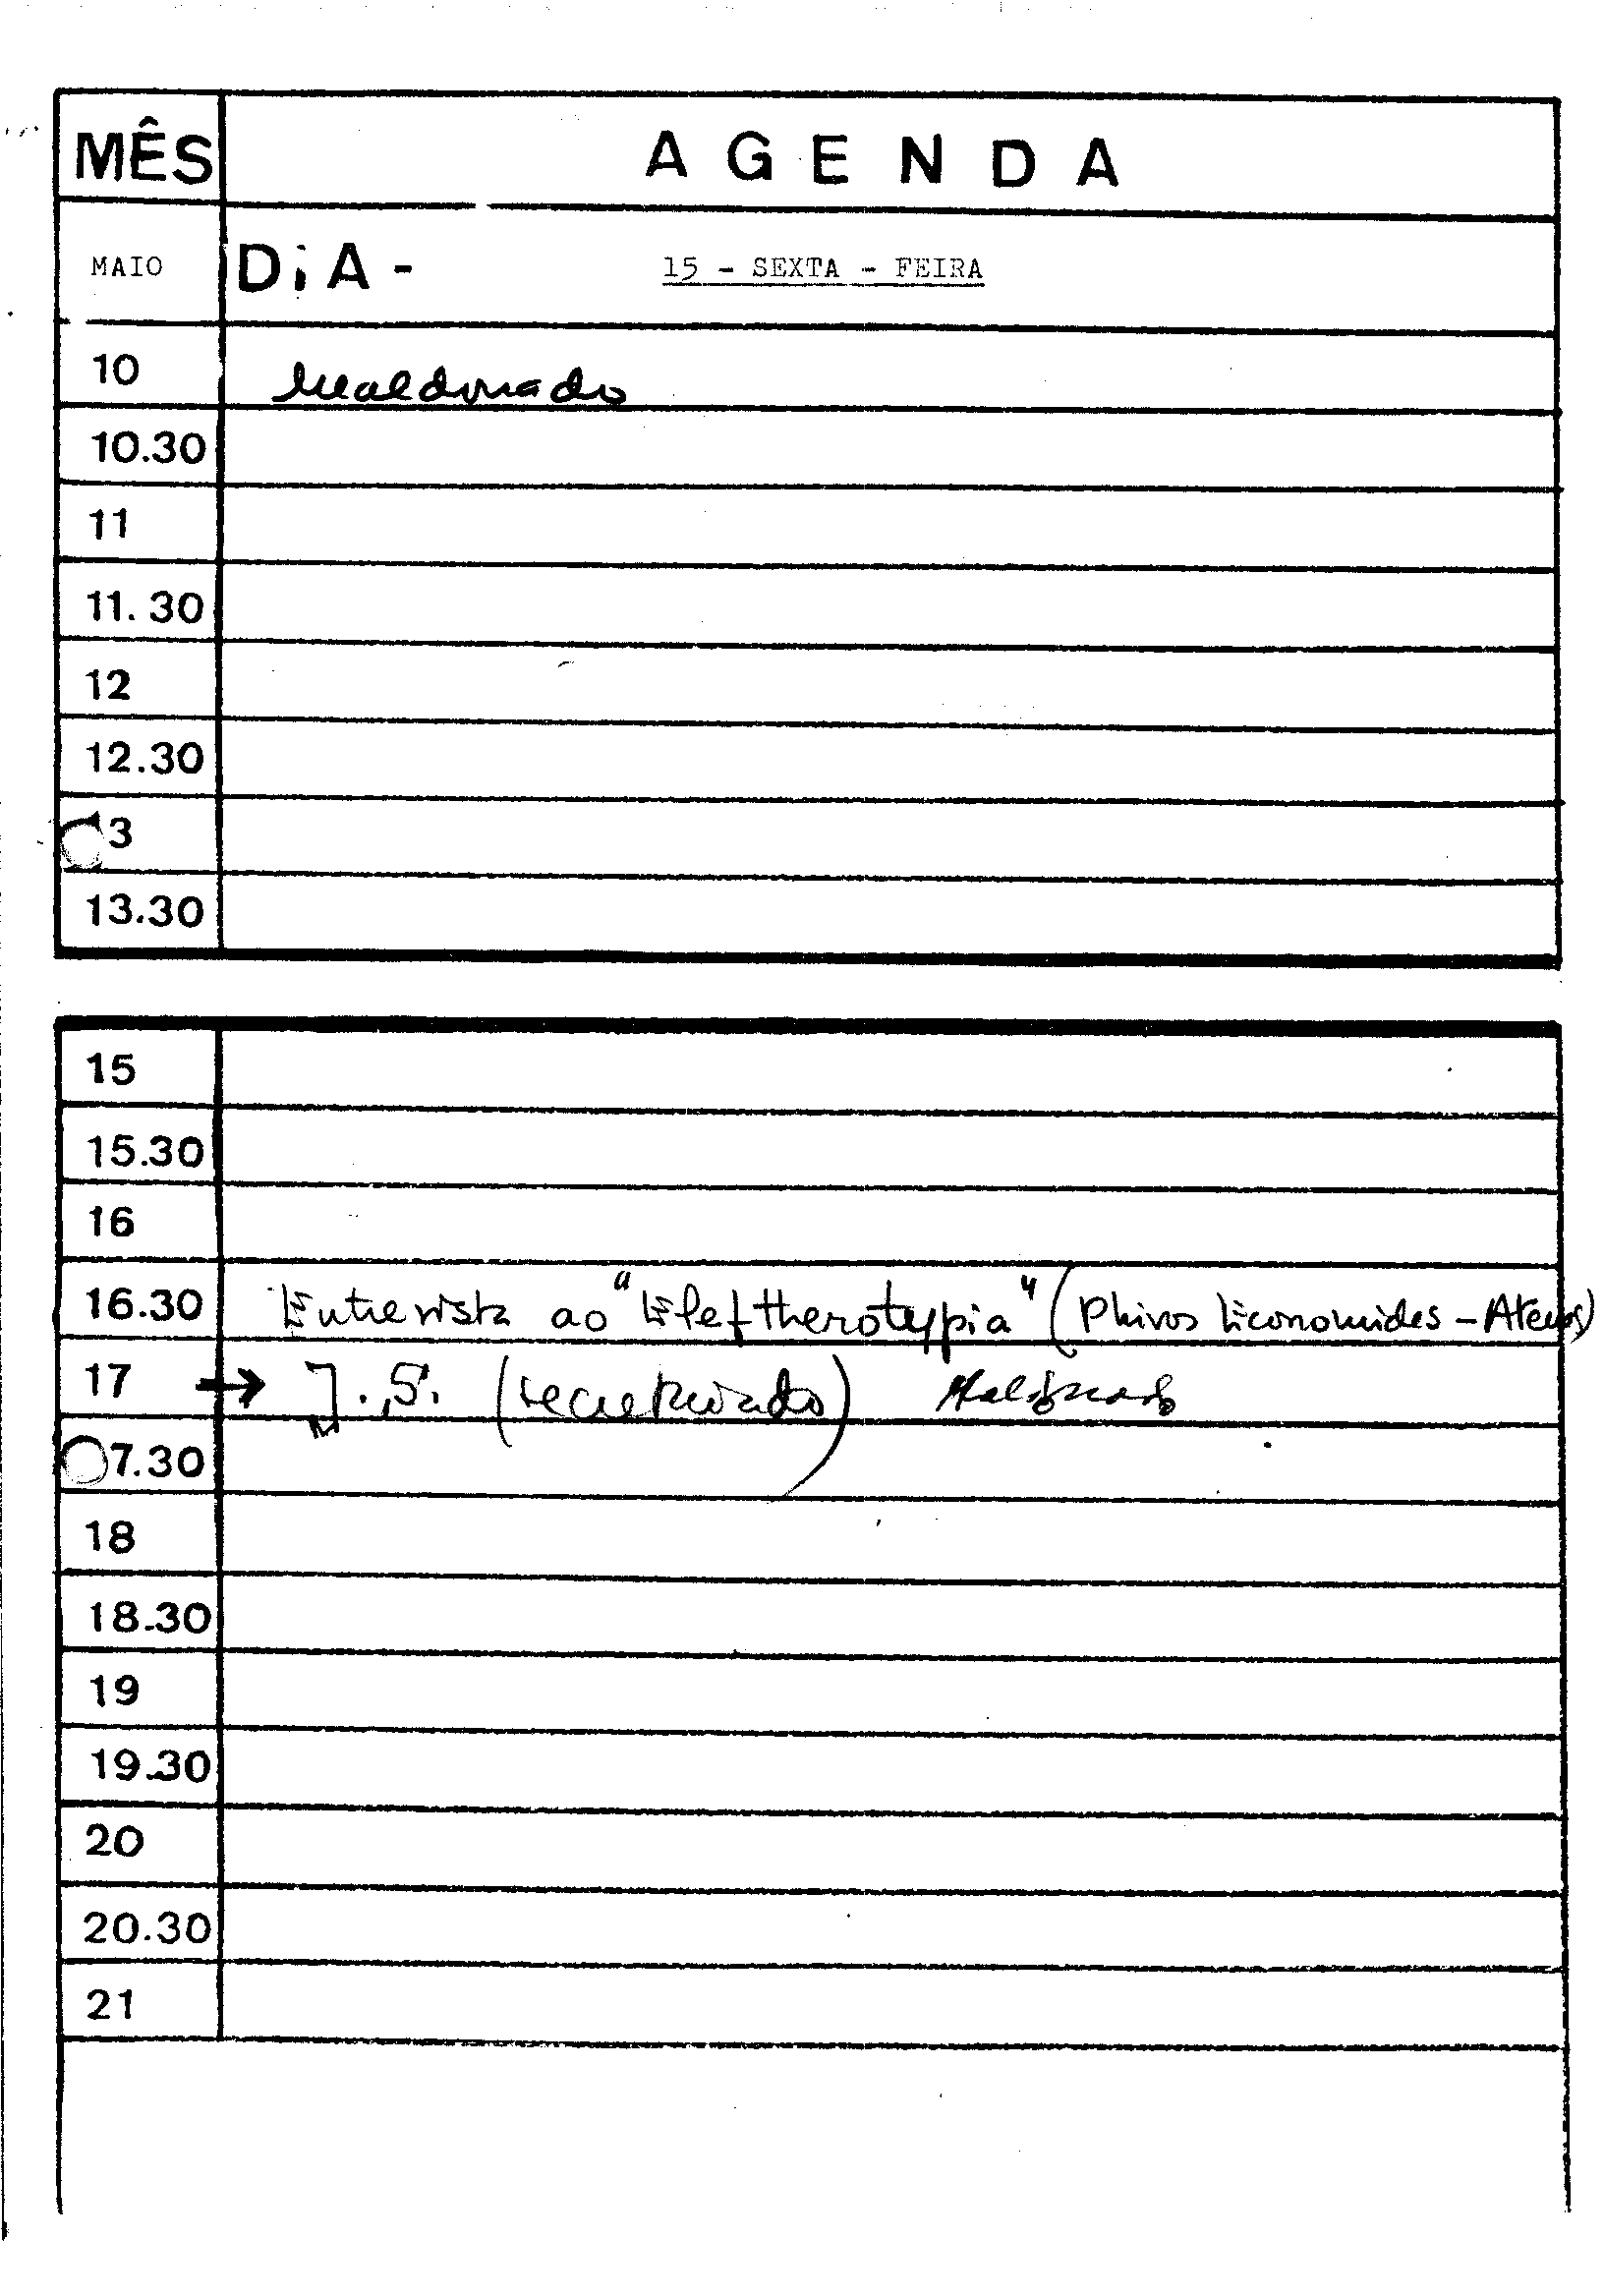 MÊS AGENDA
MAIO DiA - 15 - SEXTA - FEIRA
10 Maldonado
10.30
11
11.30
12
12.30
3
13.30
15
15.30
16
16.30 Entrevista ao "Eleftherotypia" (Phivos Economides - Atenas)
17 → J.S. (secretariado) Maldonado
7.30
18
18.30
19
19.30
20
20.30
21